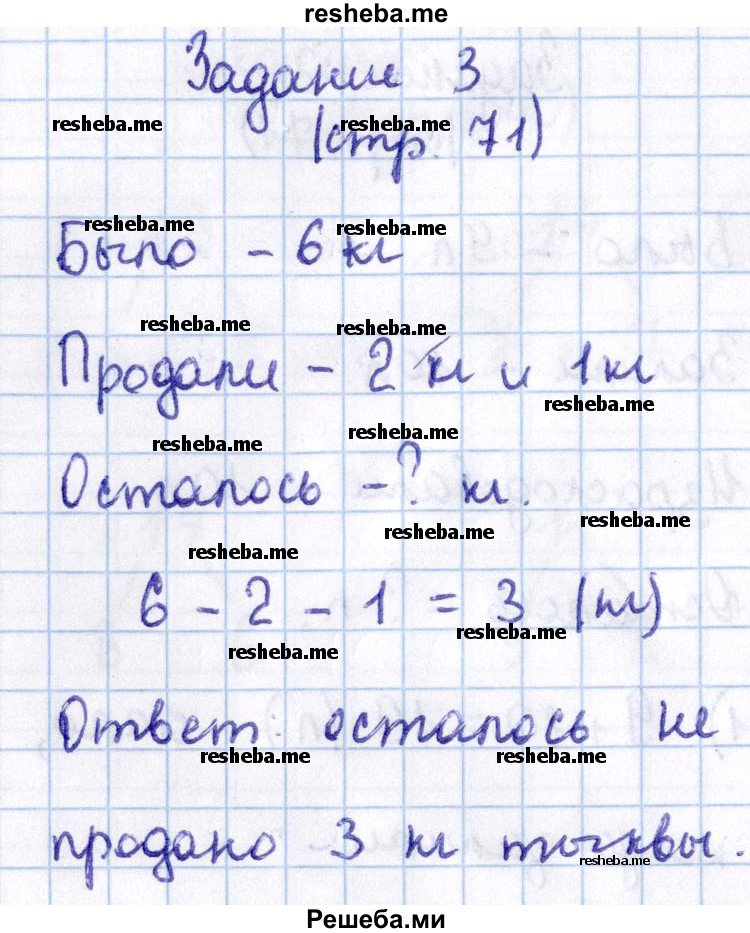 resheba.me
Задание 3
resheba.me resheba.me
(стр. 71)
resheba.me resheba.me
Было - 6 кг
resheba.me resheba.me
Продали - 2 кг и 1 кг
resheba.me
resheba.me resheba.me
Осталось - ? кг.
resheba.me resheba.me
resheba.me
6 - 2 - 1 = 3 (кг)
resheba.me
resheba.me
Ответ: осталось не
resheba.me resheba.me
продано 3 кг тыквы.
resheba.me
Решеба.ми